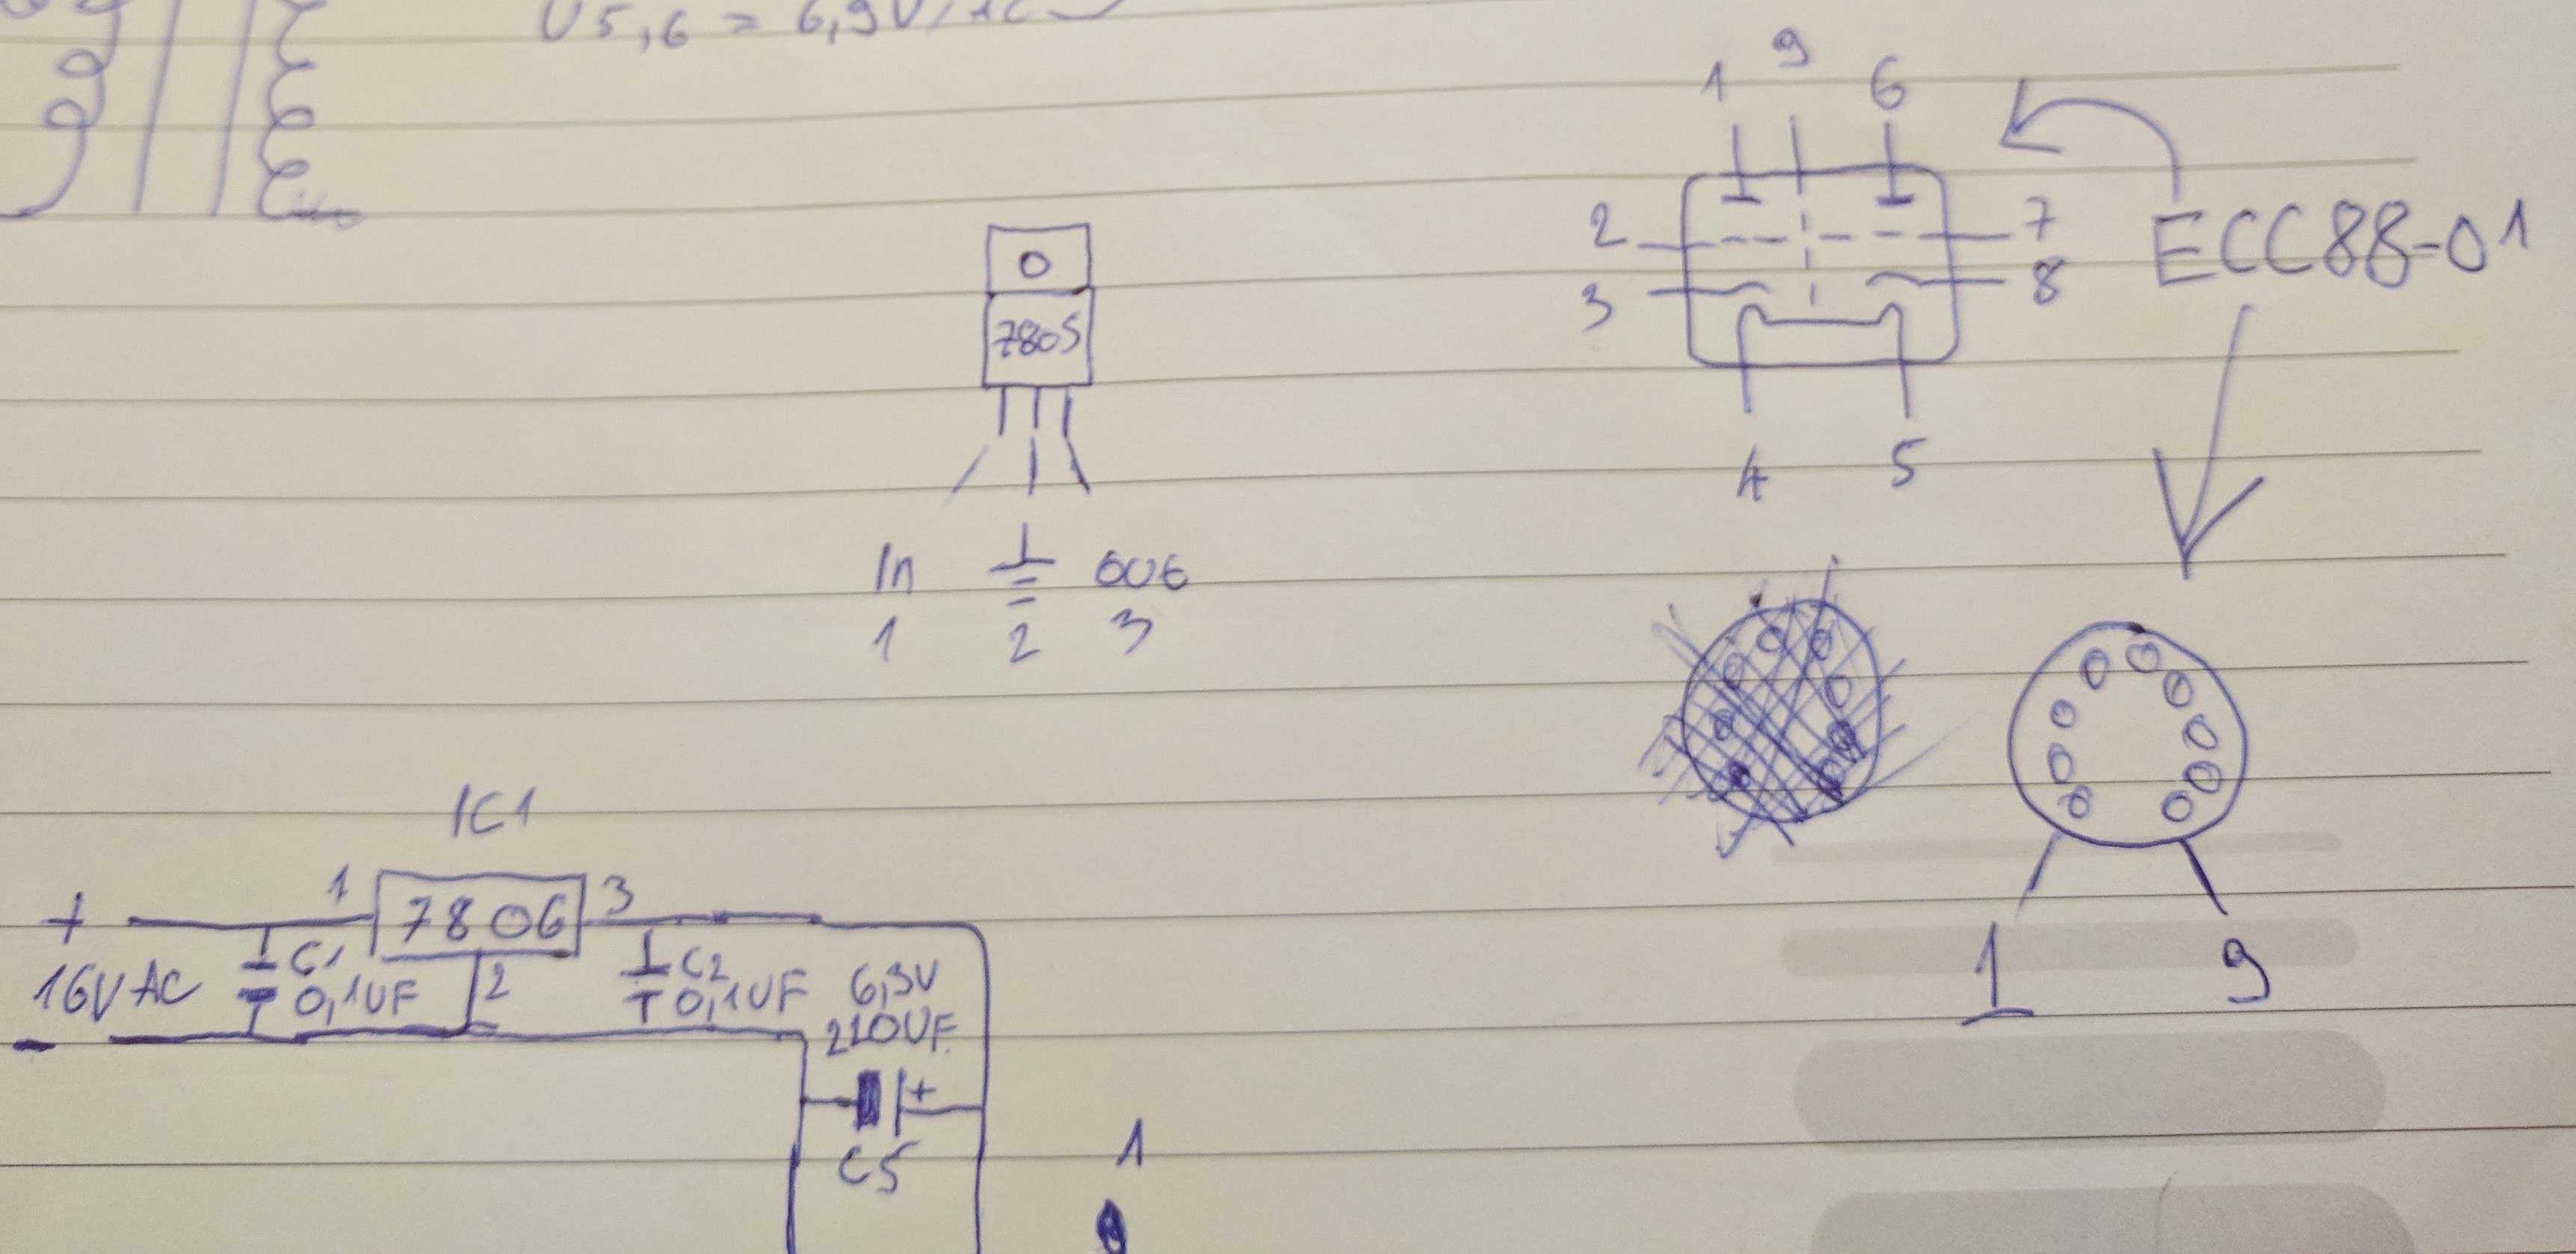 U5,6 = 6,3V/
1 9 6
2 7
3 8
ECC88-01
4 5
7805
In out
1 2 3
IC1
+ 1 7806 3
16VAC C1 2 C2 6,3V
0,1UF 0,1UF 220UF
-
+
C5
1 9
1